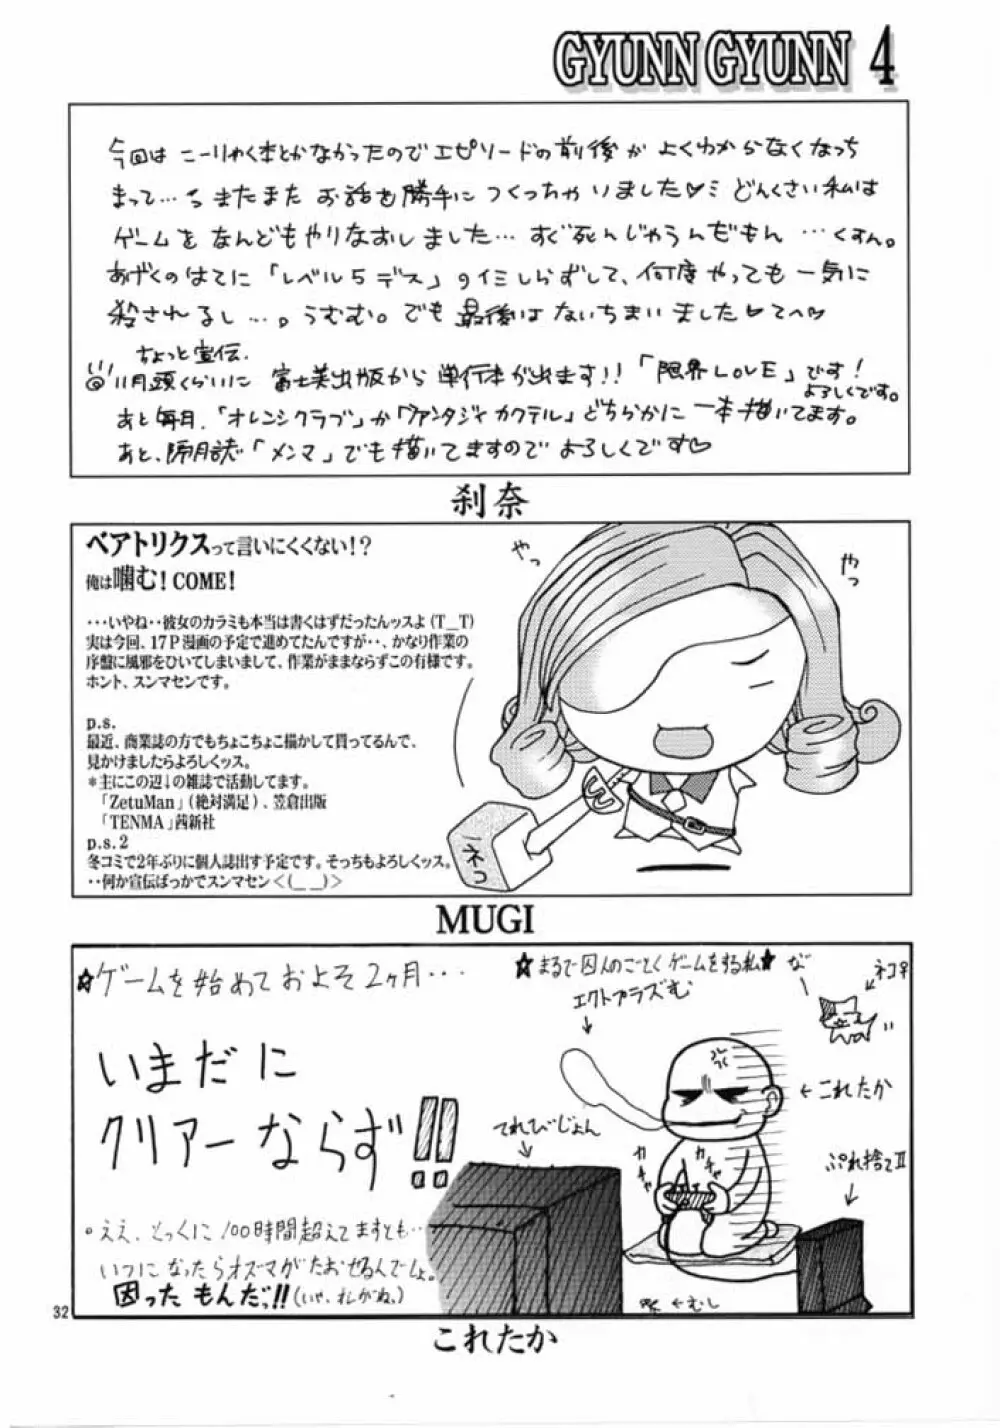 GYUNN GYUNN 4
今回は こーりゃく本とかなかったのでエピソードの前後が よくわからなくなっち
まって…。 またまた お話を勝手に つくっちゃいました♡ミ どんくさい私は
ゲームを なんどもやりなおしました… すぐ死んじゃうんだもん …くすん。
あげくのはてに「レベル5デス」のイミしらずして、何度やっても 一気に
殺されるし…。うむむ。でも 最後はないちまいました♡てへ♡
ちょっと宣伝。
11月頭くらいに 富士美出版から 単行本が出ます!!「限界LOVE」です!
よろしくです。
あと毎月、「オレンジクラブ」か「ヴァンタジィカクテル」どちらかに 一本描いてます。
あと、隔月誌「メンマ」でも描いてますのでよろしくです♡
刹奈
ベアトリクスって言いにくくない!?
俺は噛む! COME!
・・・いやね・・彼女のカラミも本当は書くはずだったんッスよ(T_T)
実は今回、17P漫画の予定で進めてたんですが・・、かなり作業の
序盤に風邪をひいてしまいまして、作業がままならずこの有様です。
ホント、スンマセンです。
p.s.
最近、商業誌の方でもちょこちょこ描かして貰ってるんで、
見かけましたらよろしくッス。
*主にこの辺↓の雑誌で活動してます。
「ZetuMan」(絶対満足)、笠倉出版
「TENMA」茜新社
p.s.2
冬コミで2年ぶりに個人誌出す予定です。そっちもよろしくッス。
・・何か宣伝ばっかでスンマセン<(_ _)>
やっ
やっ
ネコ
MUGI
☆ゲームを始めておよそ2ヶ月・・・
いまだに
クリアーならず!!
。ええ、とっくに100時間超えてますとも…
いつになったらオズマがたおせるんでしょ。
困ったもんだっ!!(いや、オレがね。)
☆まるで囚人のごとくゲームをする私★
エクトプラズむ
な
ネコ
←これたか
てれびじょん
ガチャ
ガチャ
ぷれ捨てII
←むし
32
これたか